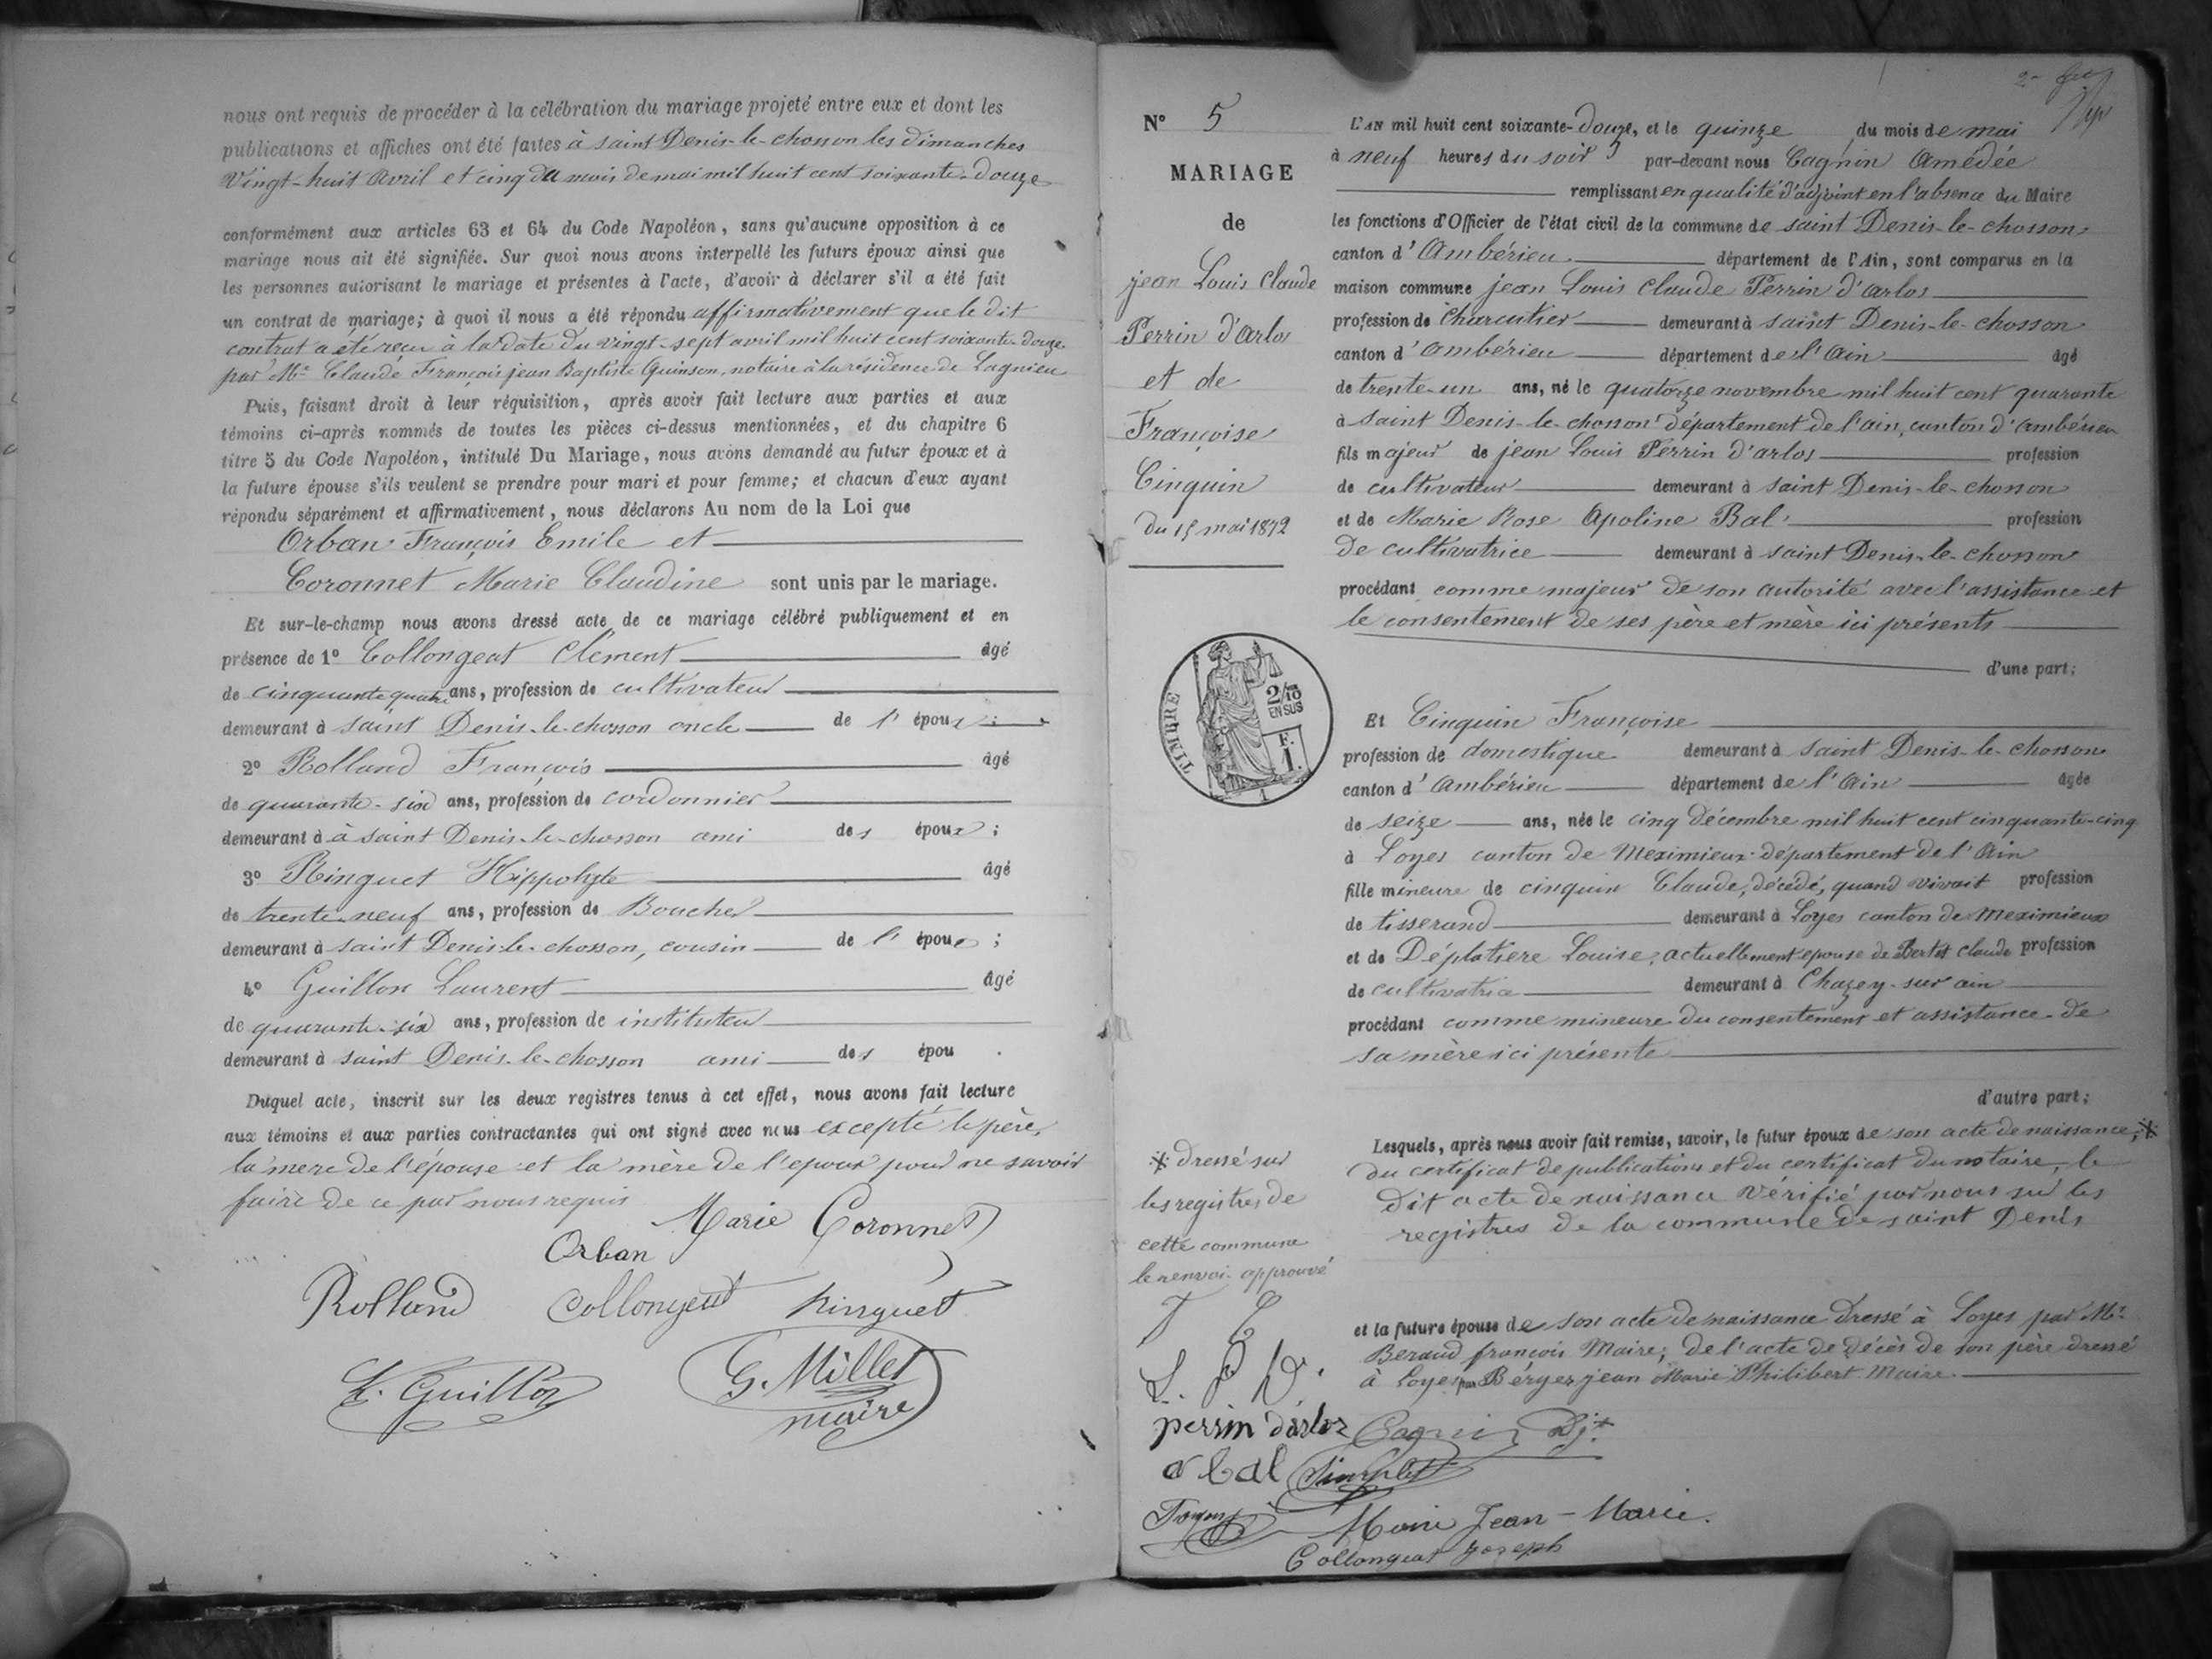 nous ont requis de procéder à la célébration du mariage projeté entre eux et dont les
publications et affiches ont été faites à saint Denis-le-chosson les dimanches
vingt-huit avril et cinq du mois de mai mil huit cent soixante-douze
conformément aux articles 63 et 64 du Code Napoléon, sans qu'aucune opposition à ce
mariage nous ait été signifiée. Sur quoi nous avons interpellé les futurs époux ainsi que
les personnes autorisant le mariage et présentes à l'acte, d'avoir à déclarer s'il a été fait
un contrat de mariage; à quoi il nous a été répondu affirmativement que le dit
contrat a été reçu à la date du vingt-sept avril mil huit cent soixante-douze
par Me Claude François jean Baptiste Guinson, notaire à la résidence de Lagnieu
Puis, faisant droit à leur réquisition, après avoir fait lecture aux parties et aux
témoins ci-après nommés de toutes les pièces ci-dessus mentionnées, et du chapitre 6
titre 5 du Code Napoléon, intitulé Du Mariage, nous avons demandé au futur époux et à
la future épouse s'ils veulent se prendre pour mari et pour femme; et chacun d'eux ayant
répondu séparément et affirmativement, nous déclarons Au nom de la Loi que
Orban François Emile et
Coronnet Marie Claudine sont unis par le mariage.
Et sur-le-champ nous avons dressé acte de ce mariage célébré publiquement et en
présence de 1° Collongeat Clément âgé
de cinquante quatre ans, profession de cultivateur
demeurant à saint Denis-le-chosson oncle de l' époux ;
2° Rolland François âgé
de quarante-six ans, profession de cordonnier
demeurant à à saint Denis-le-chosson ami des époux ;
3° Ringuet Hippolyte âgé
de trente-neuf ans, profession de Boucher
demeurant à saint Denis-le-chosson, cousin de l' épou ;
4° Guillon Laurent âgé
de quarante-six ans, profession de instituteur
demeurant à saint Denis-le-chosson ami des épou .
Duquel acte, inscrit sur les deux registres tenus à cet effet, nous avons fait lecture
aux témoins et aux parties contractantes qui ont signé avec nous excepté le père,
la mère de l'épouse et la mère de l'époux pour ne savoir
faire de ce par nous requis
Marie Coronnet
Orban
Rolland Collongeat Ringuet
L. Guillon G. Millet
maire
N° 5
MARIAGE
de
jean Louis Claude
Perrin d'arlos
et de
Françoise
Cinquin
du 15 mai 1872
TIMBRE
2/10
EN SUS
F.
1.
L'AN mil huit cent soixante-douze, et le quinze du mois de mai
à neuf heures du soir par-devant nous Cagnin Amédée
remplissant en qualité d'adjoint en l'absence du Maire
les fonctions d'Officier de l'état civil de la commune de saint Denis-le-chosson
canton d'Ambérieu département de l'Ain, sont comparus en la
maison commune jean Louis Claude Perrin d'arlos
profession de Charcutier demeurant à saint Denis-le-chosson
canton d'ambérieu département de l'Ain âgé
de trente-un ans, né le quatorze novembre mil huit cent quarante
à saint Denis-le-chosson département de l'ain, canton d'ambérieu
fils majeur de jean Louis Perrin d'arlos profession
de cultivateur demeurant à saint Denis-le-chosson
et de Marie Rose Apoline Bal profession
de cultivatrice demeurant à saint Denis-le-chosson
procédant comme majeur de son autorité avec l'assistance et
le consentement de ses père et mère ici présents
d'une part;
Et Cinquin Françoise
profession de domestique demeurant à saint Denis-le-chosson
canton d'Ambérieu département de l'Ain âgée
de seize ans, née le cinq décembre mil huit cent cinquante-cinq
à Loyes canton de Meximieux département de l'Ain
fille mineure de cinquin Claude, décédé, quand vivait profession
de tisserand demeurant à Loyes canton de Meximieux
et de Déplatiere Louise, actuellement epouse de Bertet claude profession
de cultivatrice demeurant à Chazey-sur ain
procédant comme mineure du consentement et assistance de
sa mère ici présente
d'autre part;
Lesquels, après nous avoir fait remise, savoir, le futur époux de son acte de naissance, *
du certificat de publications et du certificat du notaire, le
dit acte de naissance vérifié par nous sur les
registres de la commune de saint Denis
* dressé sur
les registres de
cette commune
le renvoi approuvé
et la future épouse de son acte de naissance dressé à Loyes par Mr
Beraud françois Maire; de l'acte de décès de son père dressé
à Loyes par Bérger jean Marie Philibert Maire.
perrin d'arloz Cagnin Adjt
a bal
Marie Jean-Marie.
Collongeat Joseph